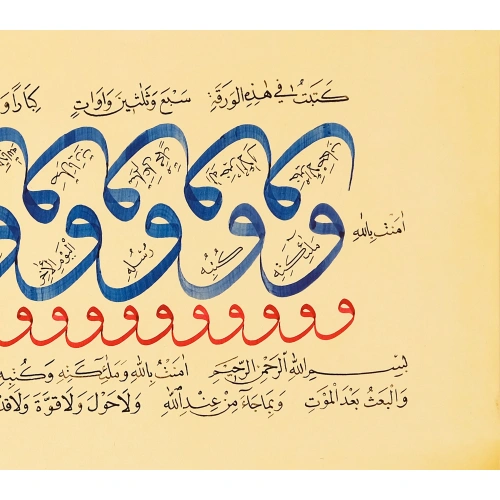 كَتَبْتُ فِي هٰذِهِ الْوَرَقَةِ سَبْعَ وَثَلٰثِينَ وَاوَاتٍ كِبَارًا وَ
اٰمَنْتُ بِاللهِ
و و و و و
مَلٰئِكَتِهِ كُتُبِهِ رُسُلِهِ الْيَوْمِ الْاٰخِرِ
و و و و و و و و و و
بِسْمِ اللهِ الرَّحْمٰنِ الرَّحِيمِ اٰمَنْتُ بِاللهِ وَمَلٰئِكَتِهِ وَكُتُبِهِ
وَالْبَعْثُ بَعْدَ الْمَوْتِ وَبِمَا جَاءَ مِنْ عِنْدِ اللهِ وَلَا حَوْلَ وَلَا قُوَّةَ